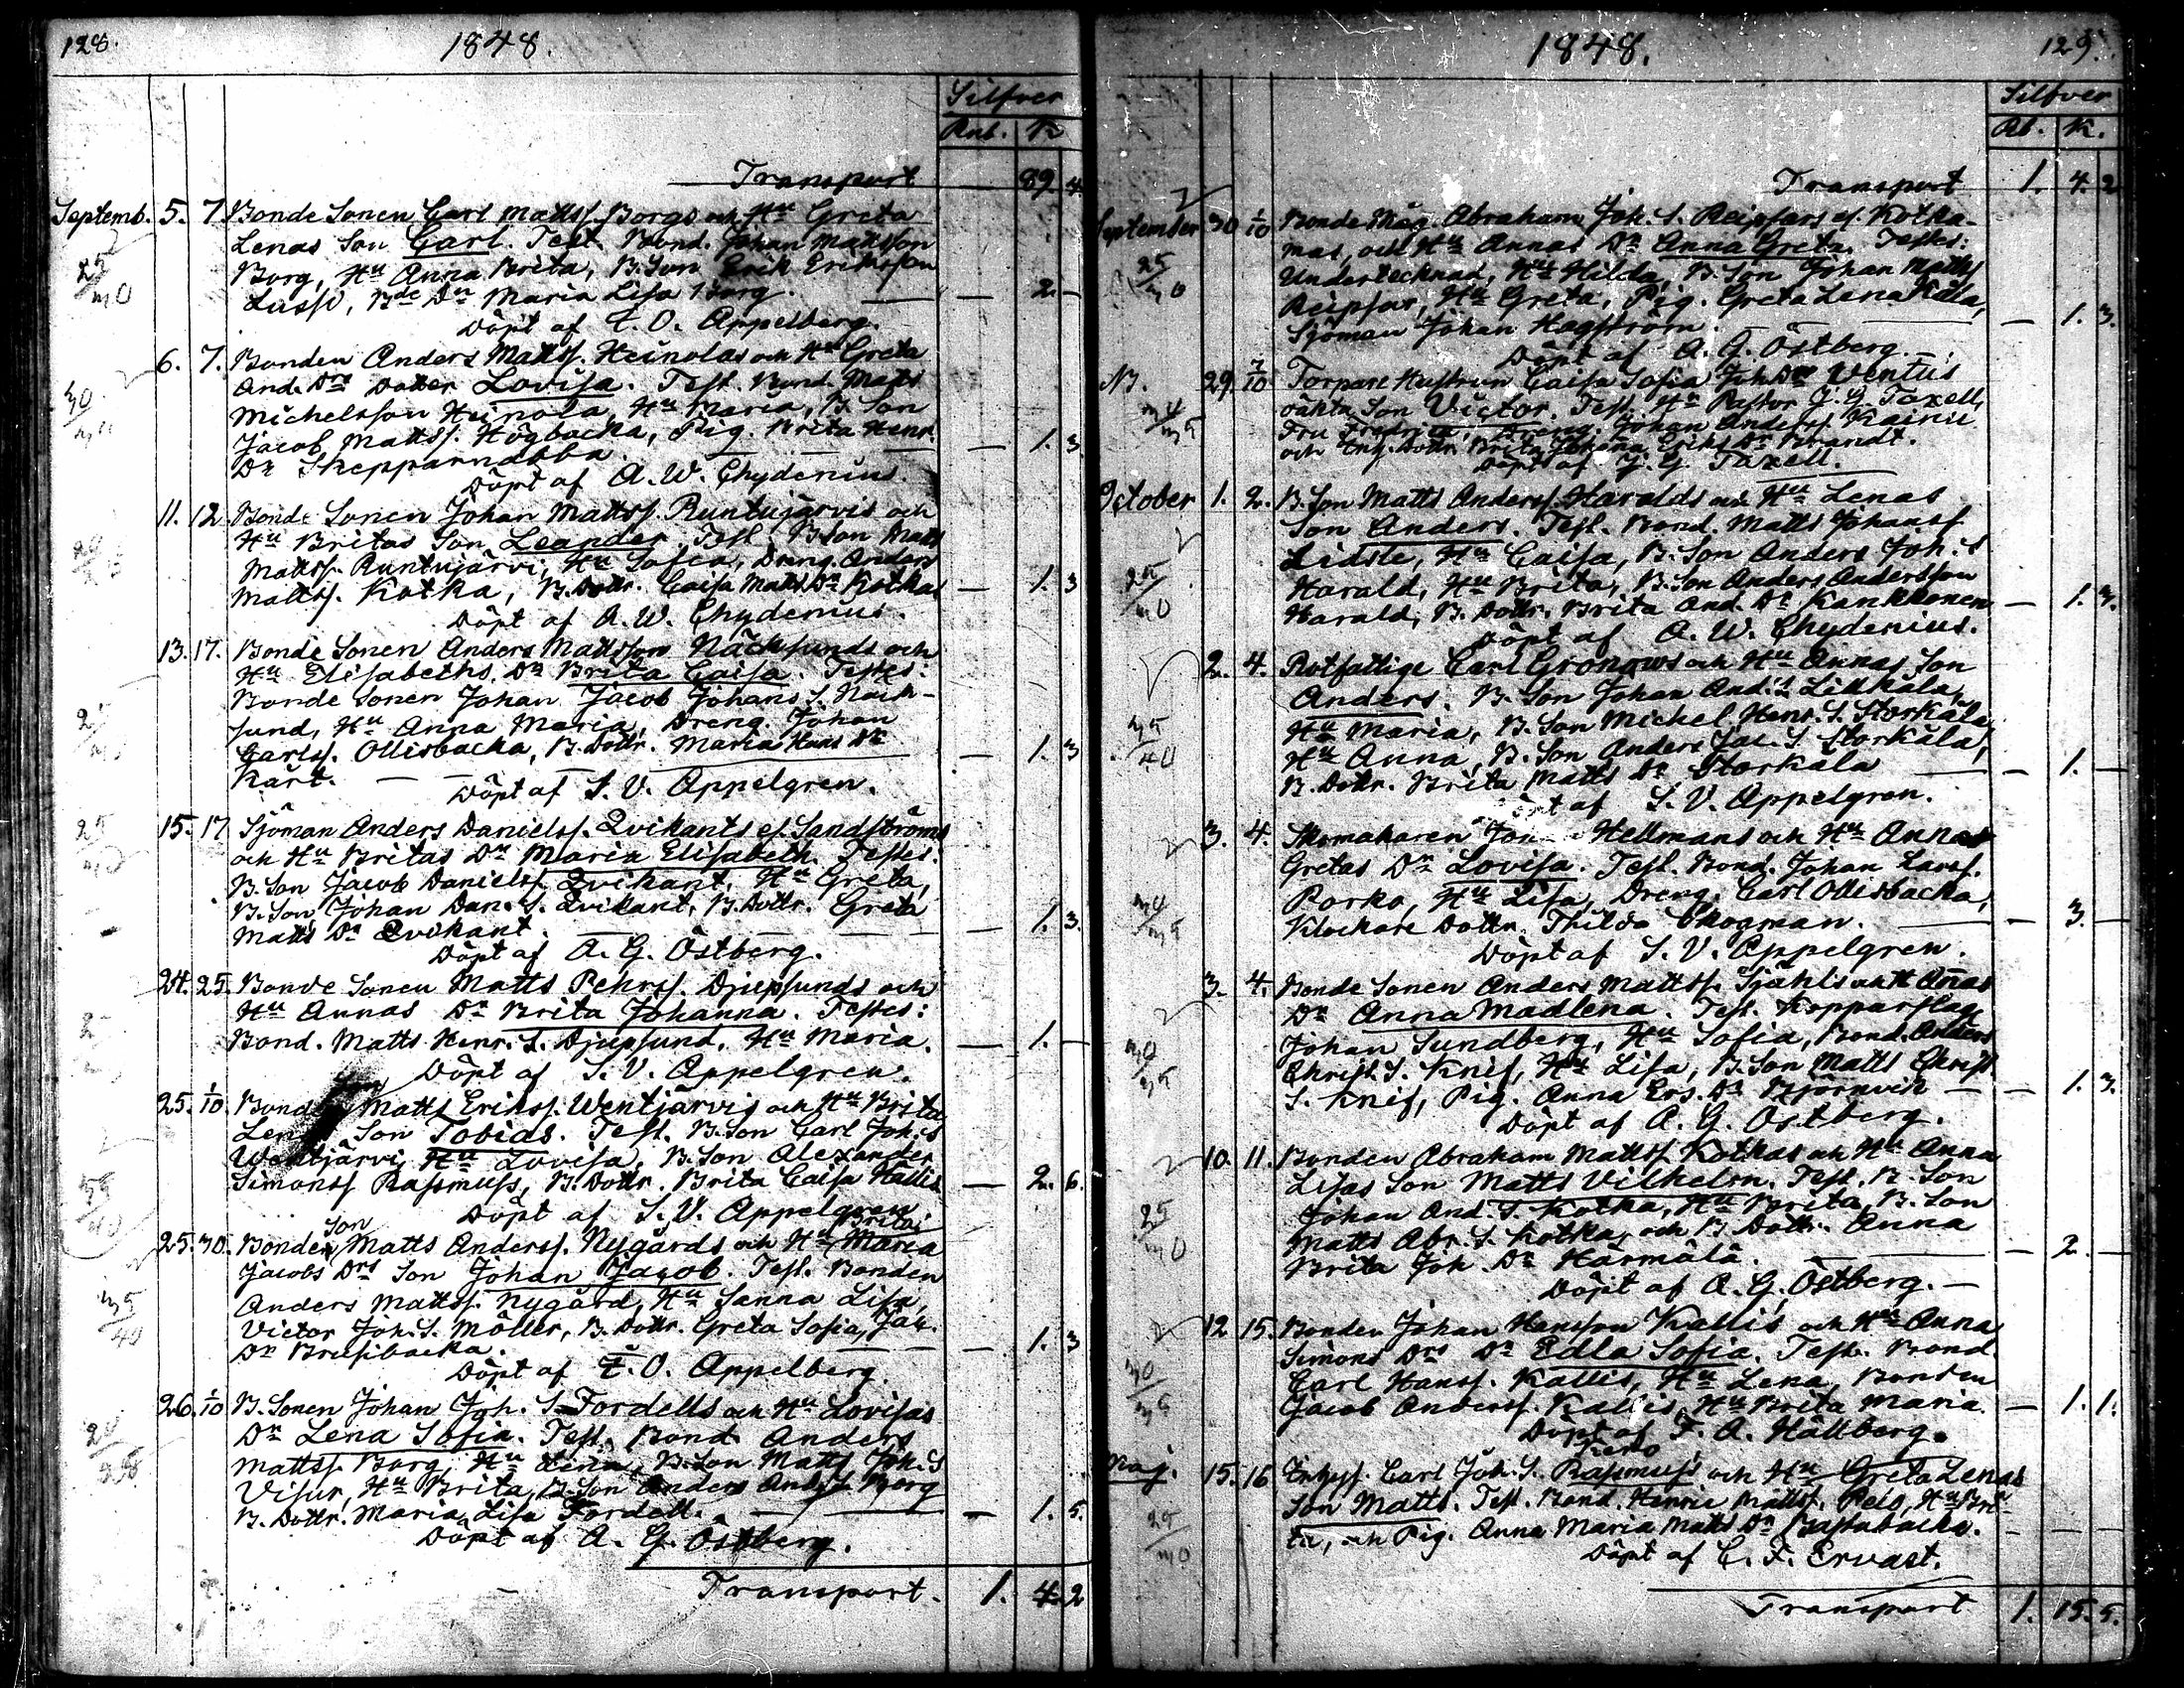 128.
1848.
Silfver
Rub. K
Transport — 89 4
Septemb. 5. 7. Bonde Sonen Carl Matts. Borgs och Hu Greta
Lenas Son Carl. Test. Bond. Johan Mattsson
Borg, Hu Anna Brita, B. Son Erik Eriksson
Lasse, Bde Dr Maria Lisa Borg. — — 2. —
25/30
Döpt af E. O. Appelberg.
6. 7. Bonden Anders Matts. Heinolas och Hu Greta
And. Drs Dotter Lovisa. Test. Bond. Matts
Michelsson Heinola, Hu Maria, B. Son
Jacob Matts. Högbacka, Pig. Brita Henr.
Dr Skepparnabba. — — — — 1. 3
Döpt af A. W. Chydenius.
11. 12 Bonde Sonen Johan Matts. Runtujärvis och
Hu Britas Son Leander. Test. B. Son Matts
Matts. Runtujärvi, Hu Sofia, Dreng. Anders
Matts. Kotka, B. Dottr. Caisa Matts Dr Kotka — 1. 3
Döpt af A. W. Chydenius.
13. 17. Bonde Sonen Anders Mattsson Näcksunds och
Hu Elisabeths. Dr Brita Caisa. Testes:
Bonde Sonen Johan Jacob Johans S. Näck-
sund, Hu Anna Maria, Dreng. Johan
Carls. Ollisbacka, B. Dottr. Maria Hans Dr
Kärt. — — — — 1. 3
Döpt af S. V. Appelgren.
15. 17 Sjöman Anders Daniels. Qvikants ef. Sandströms
och Hu Britas Dr Maria Elisabeth. Testes:
B. Son Jacob Daniels. Qvikant, Hu Greta,
B. Son Johan Dan. S. Qvikant, B. Dottr. Greta
Matts Dr Qvikant. — — — — 1. 3.
Döpt af A. G. Östberg.
24. 25. Bonde Sonen Matts Pehrs. Djupsunds och
Hu Annas Dr Brita Johanna. Testes:
Bond. Matts Henr. S. Djupsund, Hu Maria. — 1. —
Döpt af S. V. Appelgren.
25. 1/10 Bonde Matts Eriks. Wentjärvis och Hu Brita
Lenas Son Tobias. Test. B. Son Carl Joh. S
Wentjärvi, Hu Lovisa, B. Son Alexander
Simons Rasmus, B. Dottr. Brita Caisa Hällis — 2. 6.
Döpt af S. V. Appelgren
Son Brita
25. 30. Bonden Matts Anders. Nygårds och Hu Maria
Jacobs Drs Son Johan Jacob. Test. Bonden
Anders Matts. Nygård, Hu Sanna Lisa,
Victor Joh. S. Möller, B. Dottr. Greta Sofia, Jac.
Dr Brusibacka. — — — 1. 3
35/40
Döpt af E. O. Appelberg
26. 1/10 B. Sonen Johan Joh. S. Fordells och Hu Lovisas
Dr Lena Sofia. Test. Bond. Anders
Matts. Borg, Hu Lena, B. Son Matts Joh. S
Visur, Hu Brita, B. Son Anders And. S Borg
B. Dottr. Maria Lisa Fordell. — — 1. 5.
Döpt af A. G. Östberg.
Transport. 1. 4. 2
1848.
129.
Silfver
Rb. K.
Transport 1. 4. 2
September 30 1/10 Bonde Måg. Abraham Joh. S. Reipsars ef. Kotka-
mas, och Hu Annas Dr Anna Greta. Testes:
Undertecknad, Hu Hilda, B. Son Johan Matts
Reipsar, Hu Greta, Pig. Greta Lena Käla,
Sjöman Johan Hagström. — — 1. 3.
25/30
Döpt af A. G. Östberg. —
N. 29 7/10 Torpare Hustrun Caisa Sofia Joh Drs Wentus
oäkta Son Victor. Test. Hr Pastor J. G. Taxell,
Fru Fredrica, Dreng. Johan Anders. Kainu
och Enk. Dottr. Brita Johanna Eriks Dr Brandt.
Döpt af J. G. Taxell.
October 1. 2. B. Son Matts Anders. Haralds och Hu Lenas
Son Anders. Test. Bond. Matts Johans
Lidste, Hu Caisa, B. Son Anders Joh. S
Harald, Hu Brita, B. Son Anders Andersson
Harald, B. Dottr. Brita And. Dr Kankkonen — 1. 3.
25/30
Döpt af A. W. Chydenius.
2. 4. Rotfattige Carl Grönqvs och Hu Annas Son
Anders. B. Son Johan And. S Lillkäla,
Hu Maria, B. Son Michel Henr. S. Storkäla,
Hu Anna, B. Son Anders Jac. S. Storkäla,
B. Dottr. Brita Matts Dr Storkäla — — 1. —
35/40
Döpt af S. V. Appelgren.
3. 4. Skomakaren Hellmans och Hu Anna
Gretas Dr Lovisa. Test. Bond. Johan Lars.
Porko, Hu Lisa, Dreng. Carl Ollisbacka,
Klockare Dottr. Thilda Skogman. — — 3. —
30/35
Döpt af S. V. Appelgren.
3. 4. Bonde Sonen Anders Matts. Själs och H Annas
Dr Anna Madlena. Test. Kopparslag
Johan Sundberg, Hu Sofia, Bond. Anders
Christ. S. Knif, Hu Lisa, B. Son Matts Christ.
S. Knif, Pig. Anna Ers. Dr Björnvik — — 1. 3.
30/35
Döpt af A. G. Östberg.
10. 11. Bonden Abraham Matts. Kotkas och Hu Anna
Lisas Son Matts Vilhelm. Test. B. Son
Johan And. S. Kotka, Hu Brita, B. Son
Matts Abr. S. Kotka, och B. Dottr. Anna
Brita Joh. Dr Härmälä. — — 2. —
25/30
Döpt af A. G. Östberg. —
12 15. Bonden Johan Hansson Kallis och Hu Anna
Simons Drs Dr Edla Sofia. Test. Bond.
Carl Hans. Kallis, Hu Lena, Bonden
Jacob Anders. Kallis, Hu Brita Maria. — 1. 1.
30/35
Döpt af F. A. Hällberg.
Maj. 15. 16 Carl Joh. S. Rasmus och Hu Greta Lenas
Son Matts. Test. Bond. Henric Matts. Peio, Hu Bri-
ta, och Pig. Anna Maria Matts Dr Bastubacka. — — —
25/30
Döpt af C. F. Ervast.
Transport 1. 15. 5.